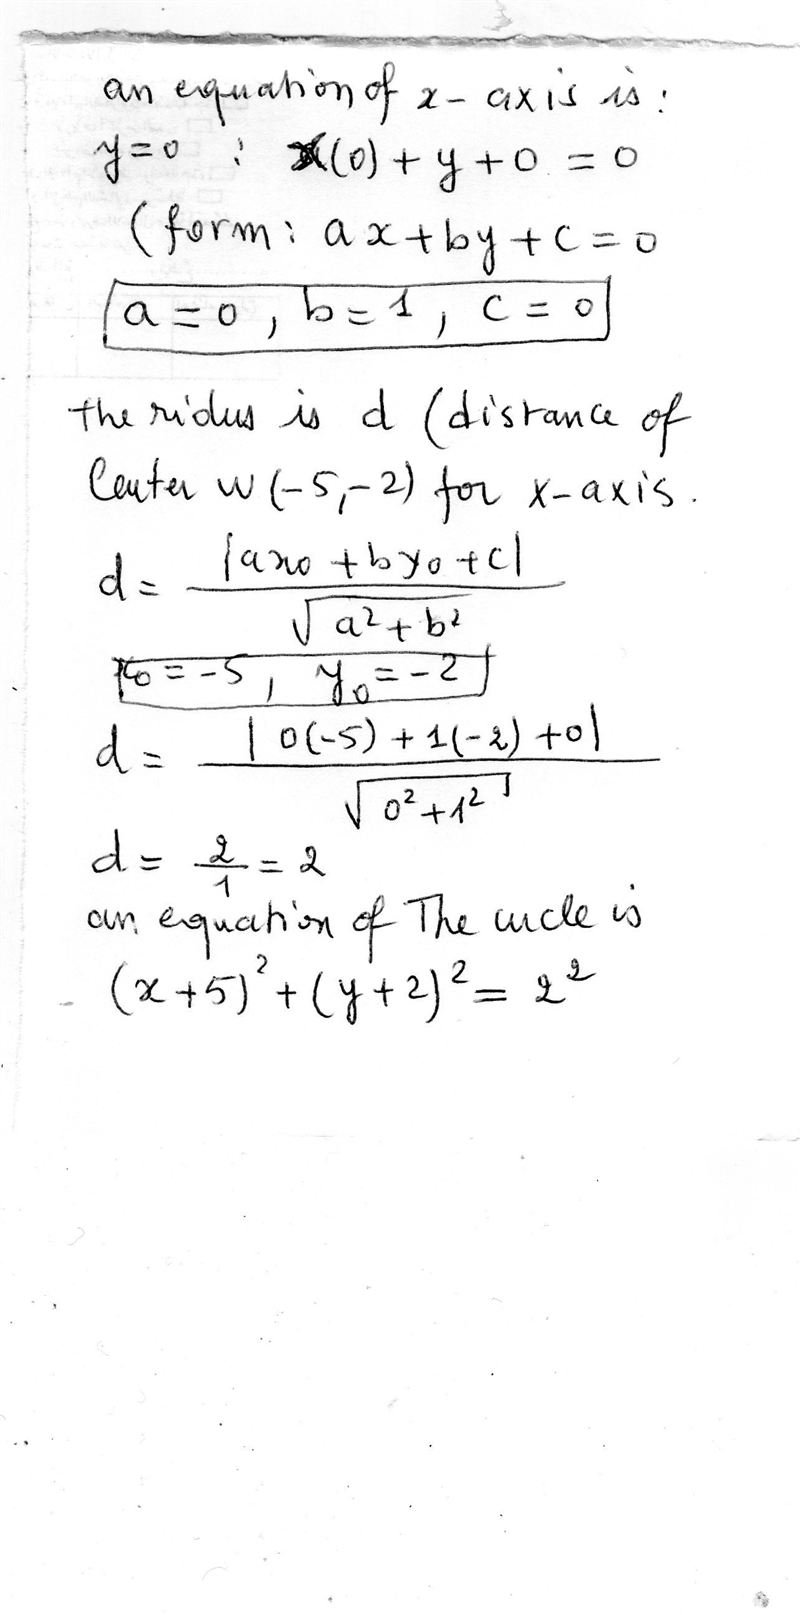 an equation of x-axis is:
y=0 : x(0)+y+0=0
(form: ax+by+c=0
a=0, b=1, c=0
the ridus is d (distance of
Center w(-5,-2) for x-axis.
d= |ax₀+by₀+c| / √a²+b²
x₀=-5, y₀=-2
d= |0(-5)+1(-2)+0| / √0²+1²
d= 2/1 =2
an equation of The circle is
(x+5)²+(y+2)²=2²